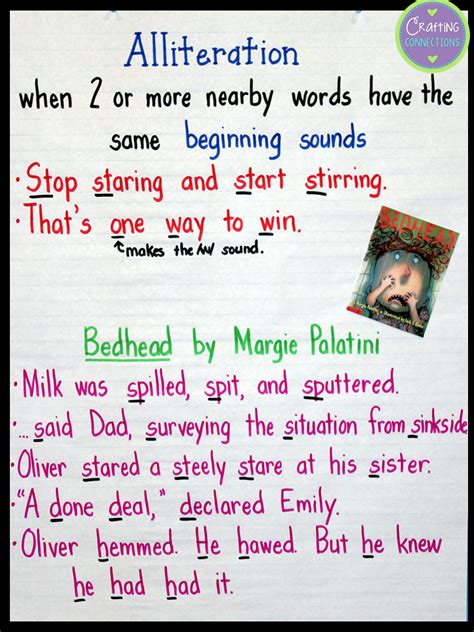 Crafting
CONNECTIONS
Alliteration
when 2 or more nearby words have the
same beginning sounds
• Stop staring and start stirring.
• That's one way to win.
↑makes the /w/ sound.
BEDHEAD
Bedhead by Margie Palatini
• Milk was spilled, spit, and sputtered.
• ... said Dad, surveying the situation from sinkside
• Oliver stared a steely stare at his sister.
• "A done deal," declared Emily.
• Oliver hemmed. He hawed. But he knew
he had had it.